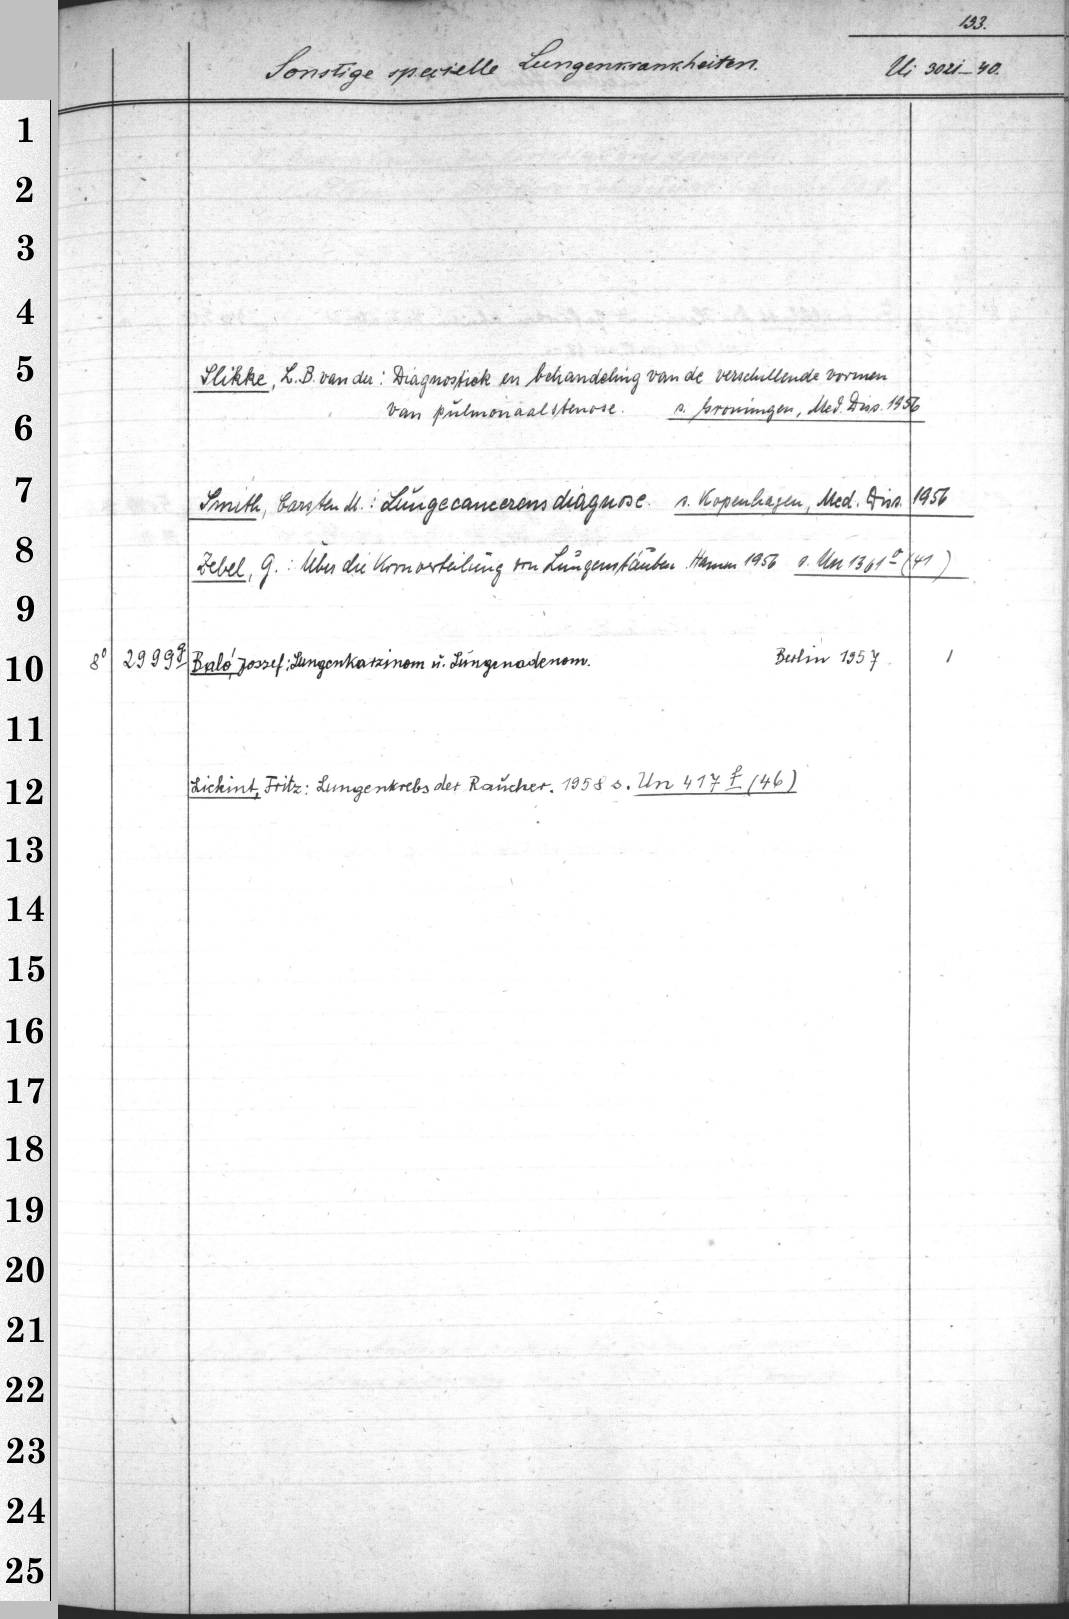 133.
Sonstige specielle Lungenkrankheiten. Ui 3021-40.
1
2
3
4
5
Slikke, L. B. van der: Diagnostiek en behandeling van de verschillende vormen
6
van pulmonaalstenose. s. Groningen, Med. Diss. 1956
7
Smith, Carsten M.: Lungecancerens diagnose. s. Kopenhagen, Med. Diss. 1956
8
Zebel, G.: Über die Kornverteilung von Lungenstäuben. Hamm 1956 s. Un 1361 a (41)
9
10
8° 2999 g Baló, Jossef: Lungenkarzinom u. Lungenadenom. Berlin 1957. 1
11
12
Lickint, Fritz: Lungenkrebs der Raucher. 1958 s. Un 417 f (46)
13
14
15
16
17
18
19
20
21
22
23
24
25